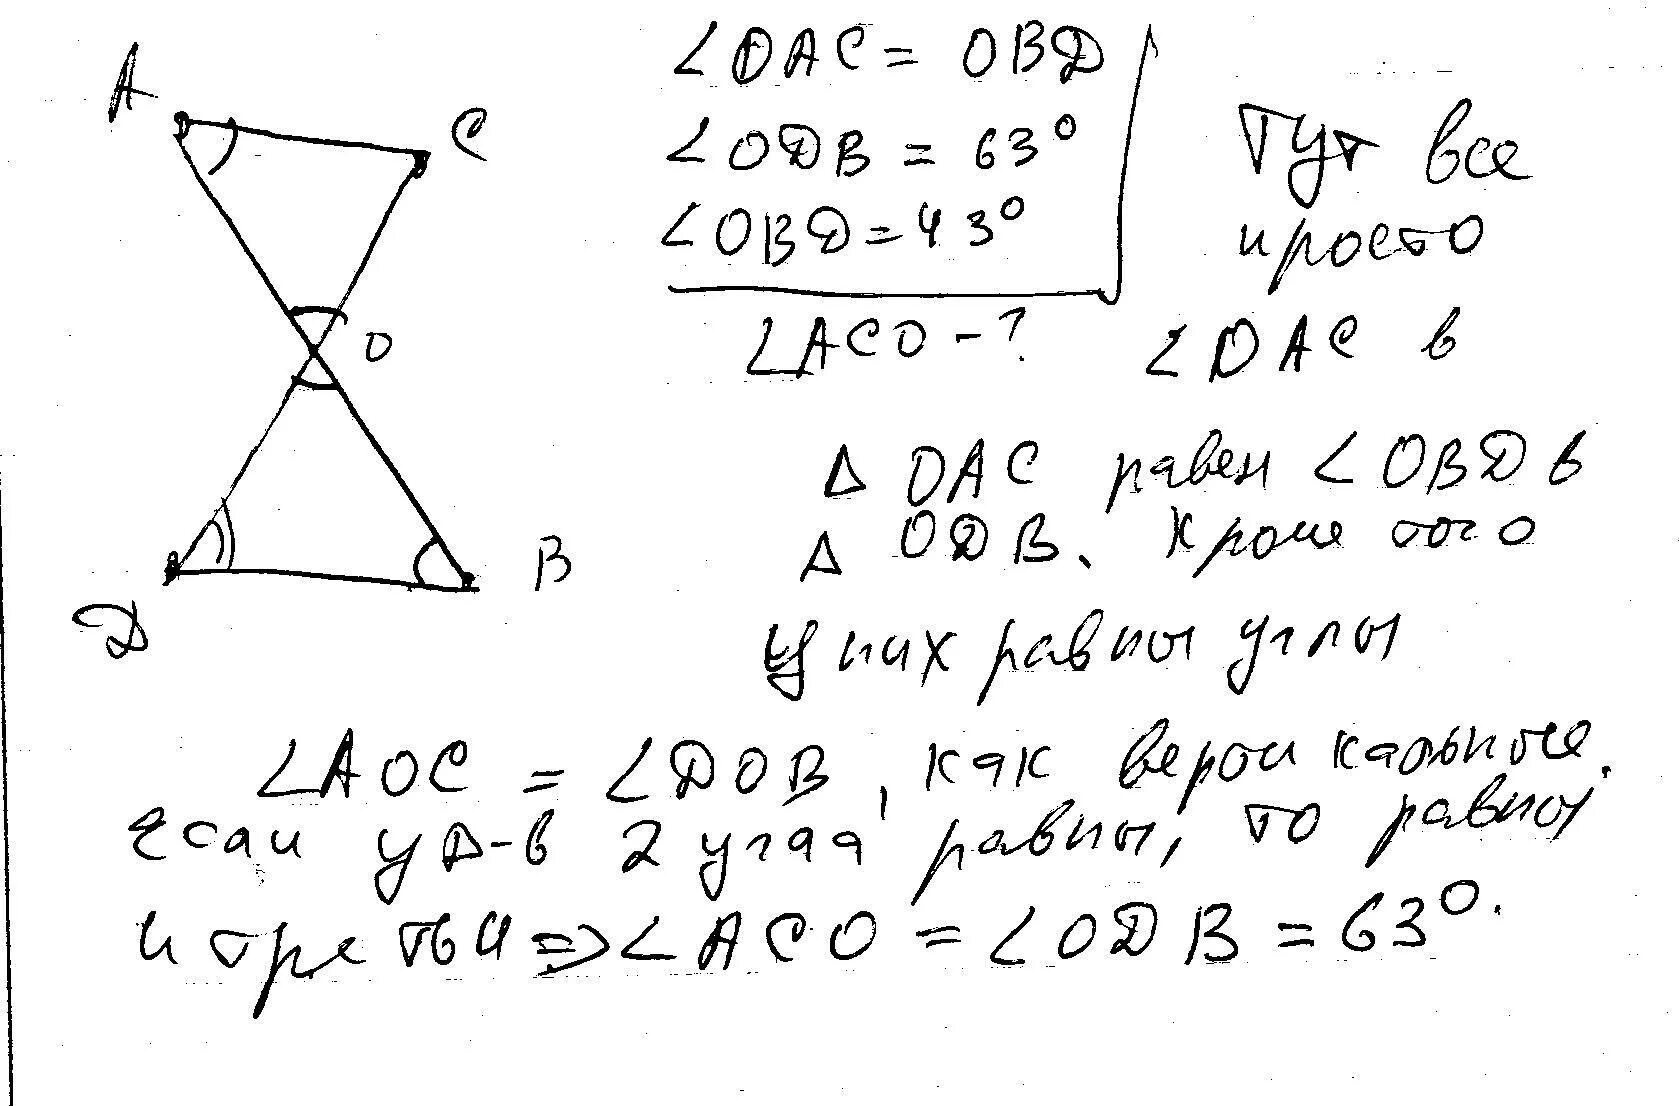 A
C
O
B
D
∠OAC = OBD
∠ODB = 63°
∠OBD = 43°
∠ACO - ?
Тут все
просто
∠OAC в
Δ OAC равен ∠OBD в
Δ ODB. Кроме того
у них равны углы
∠AOC = ∠DOB, как вертикальные.
Если у Δ-в 2 угла равны, то равны
и третьи => ∠ACO = ∠ODB = 63°.